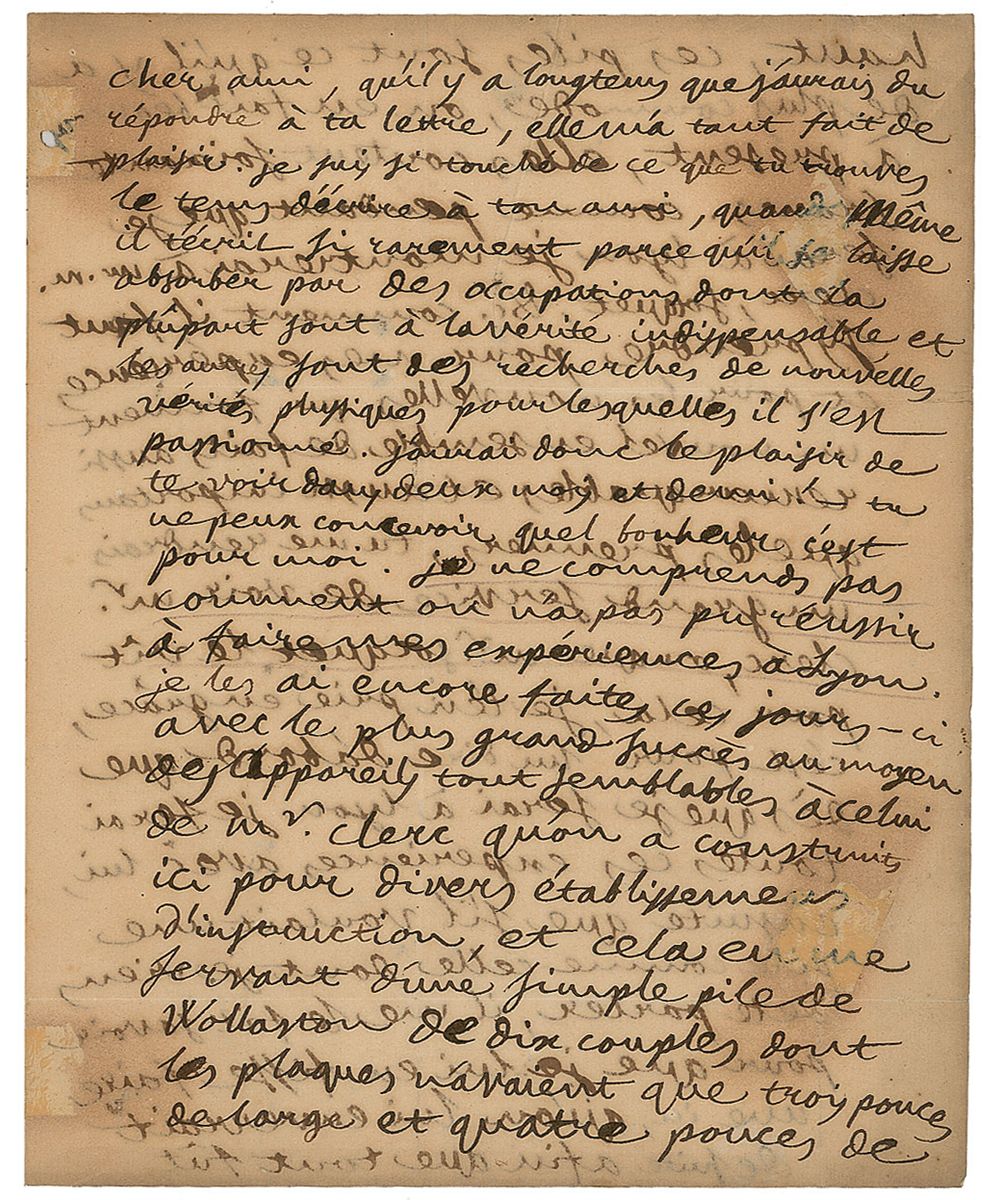 cher ami, qu'il y a longtems que j'aurais du
répondre à ta lettre, elle m'a tant fait de
plaisir. je suis si touché de ce que tu trouves
le tems d'écrire à ton ami, quand même
il t'écrit si rarement parce qu'il se laisse
absorber par des occupations dont la
plûpart sont à la vérité indispensable et
les autres sont des recherches de nouvelles
vérités physiques pour lesquelles il s'est
passionné j'aurai donc le plaisir de
te voir dans deux mois et demi! tu
ne peux concevoir quel bonheur c'est
pour moi. je ne comprends pas
comment on n'a pas pu réussir
à faire mes expériences à Lyon.
je les ai encore faites ces jours-ci
avec le plus grand succès au moyen
des appareils tout semblables à celui
de mr. Clerc qu'on a construits
ici pour divers établissemens
d'instruction, et cela en me
servant d'une simple pile de
Wollaston de dix couples dont
les plaques n'avaient que trois pouces
de large et quatre pouces de